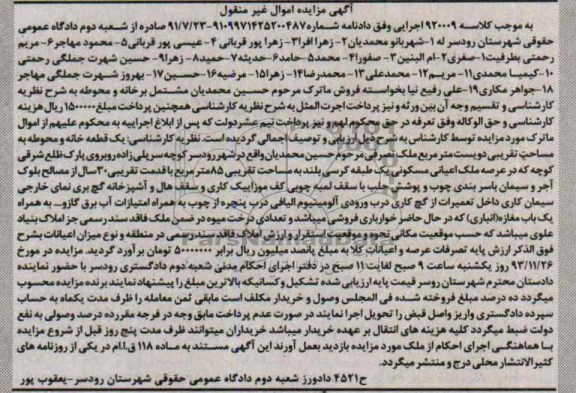 آگهی مزایده اموال غیر منقول
به موجب کلاسه ۹۲۰۰۰۹ اجرایی وفق دادنامه شماره ۹۱۰۹۹۷۱۴۲۵۲۰۰۴۸۷-۹۱/۷/۲۳ صادره از شعبه دوم دادگاه عمومی
حقوقی شهرستان رودسر له ۱-شهربانو محمدیان۲- زهرا افرا۳- زهرا پور قربانی ۴- عیسی پور قربانی۵- محمود مهاجر۶- مریم
رحمتی بطرفیت۱-صغری۲-ام البنین ۳- صفورا۴- محمد۵-حامد۶-حدیثه۷- حمید۸- زهرا۹- حسین شهرت جملگی رحمتی
۱۰-کیمیا محمدی۱۱-مریم۱۲- محمدعلی۱۳- محمدرضا۱۴- زهرا۱۵- مرضیه۱۶- حسین۱۷- بهروز شهرت جملگی مهاجر
۱۸-جواهر مکاری۱۹-علی رفیع نیا بخواسته فروش ماترک مرحوم حسین محمدیان مشتمل برخانه و محوطه به شرح نظریه
کارشناسی و تقسیم وجه آن بین ورثه و نیز پرداخت اجرت المثل به شرح نظریه کارشناسی همچنین پرداخت مبلغ ۱۵۰۰۰۰۰ ریال هزینه
کارشناسی و حق الوکاله وفق تعرفه در حق محکوم لهم و نیز پرداخت نیم عشر دولت که پس از ابلاغ اجراییه به محکوم علیهم از اموال
ماترک مورد مزایده توسط کارشناس به شرح ذیل ارزیابی و توصیف اجمالی گردیده است. نظریه کارشناسی: یک قطعه خانه و محوطه به
مساحت تقریبی دویست متر مربع ملک متصرفی مرحوم حسین محمدیان واقع در شهر رودسر کوچه سر پلی زاده روبروی پارک ظلع شرقی
کوچه که در عرصه ملک اعیانی مسکونی یک طبقه کرسی بلند به مساحت تقریبی ۸۵متر مربع با قدمت تقریبی ۳۰سال از مصالح بلوک
آجر و سیمان باسر بندی چوب و پوشش حلب با سقف لمبه چوبی کف موزاییک کاری و سقف هال و آشپزخانه گچ بری نمای خارجی
سیمان کاری داخل تعمیرات از گچ کاری درب ورودی آلومینیوم الیافی درب پنجره از چوب به همراه امتیازات آب برق گازو... به همراه
یک باب مغازه(انباری) که در حال حاضر خواربار فروشی میباشد و تعدادی درخت میوه در ضمن ملک فاقد سند رسمی جز املاک بنیاد
علوی میباشد که حسب موقعیت مکانی نحوه و موقعیت استقرار و ارزش املاک فاقد سند رسمی در منطقه و نوع میزان اعیانات بشرح
فوق الذکر ارزش پایه تصرفات عرصه و اعیانات کلا به مبلغ پانصد میلیون ریال برابر ۵۰۰۰۰۰۰۰ تومان برآورد گردید. مزایده در مورخ
۹۳/۱۱/۲۶ روز یکشنبه ساعت ۹ صبح لغایت ۱۱ صبح در دفتر اجرای احکام مدنی شعبه دوم دادگستری رودسر با حضور نماینده
دادستان محترم شهرستان رودسر قیمت پایه ارزیابی شده تشکیل وکسانیکه بالاترین مبلغ را پیشنهاد نمایند برنده مزایده محسوب
میگردد ده درصد مبلغ فروخته شده فی المجلس وصول و خریدار مکلف است مابقی ثمن معامله را ظرف مدت یکماه به حساب
سپرده دادگستری واریز واصل قبض را تحویل اجرا نمایند در صورت عدم پرداخت مابق وجه در فرجه مقرر ده درصد وصولی به نفع
دولت ضبط میگردد کلیه هزینه های انتقال بر عهده خریدار میباشد خریداران میتوانند ظرف مدت پنج روز قبل از شروع مزایده
با هماهنگی اجرای احکام از ملک مورد مزایده بازدید بعمل آورند این آگهی مستند به ماده ۱۱۸ ق.ا.م در یکی از روزنامه های
کثیر الانتشار محلی درج و منتشر میگردد.
ح۴۵۲۱ دادورز شعبه دوم دادگاه عمومی حقوقی شهرستان رودسر-یعقوب پور